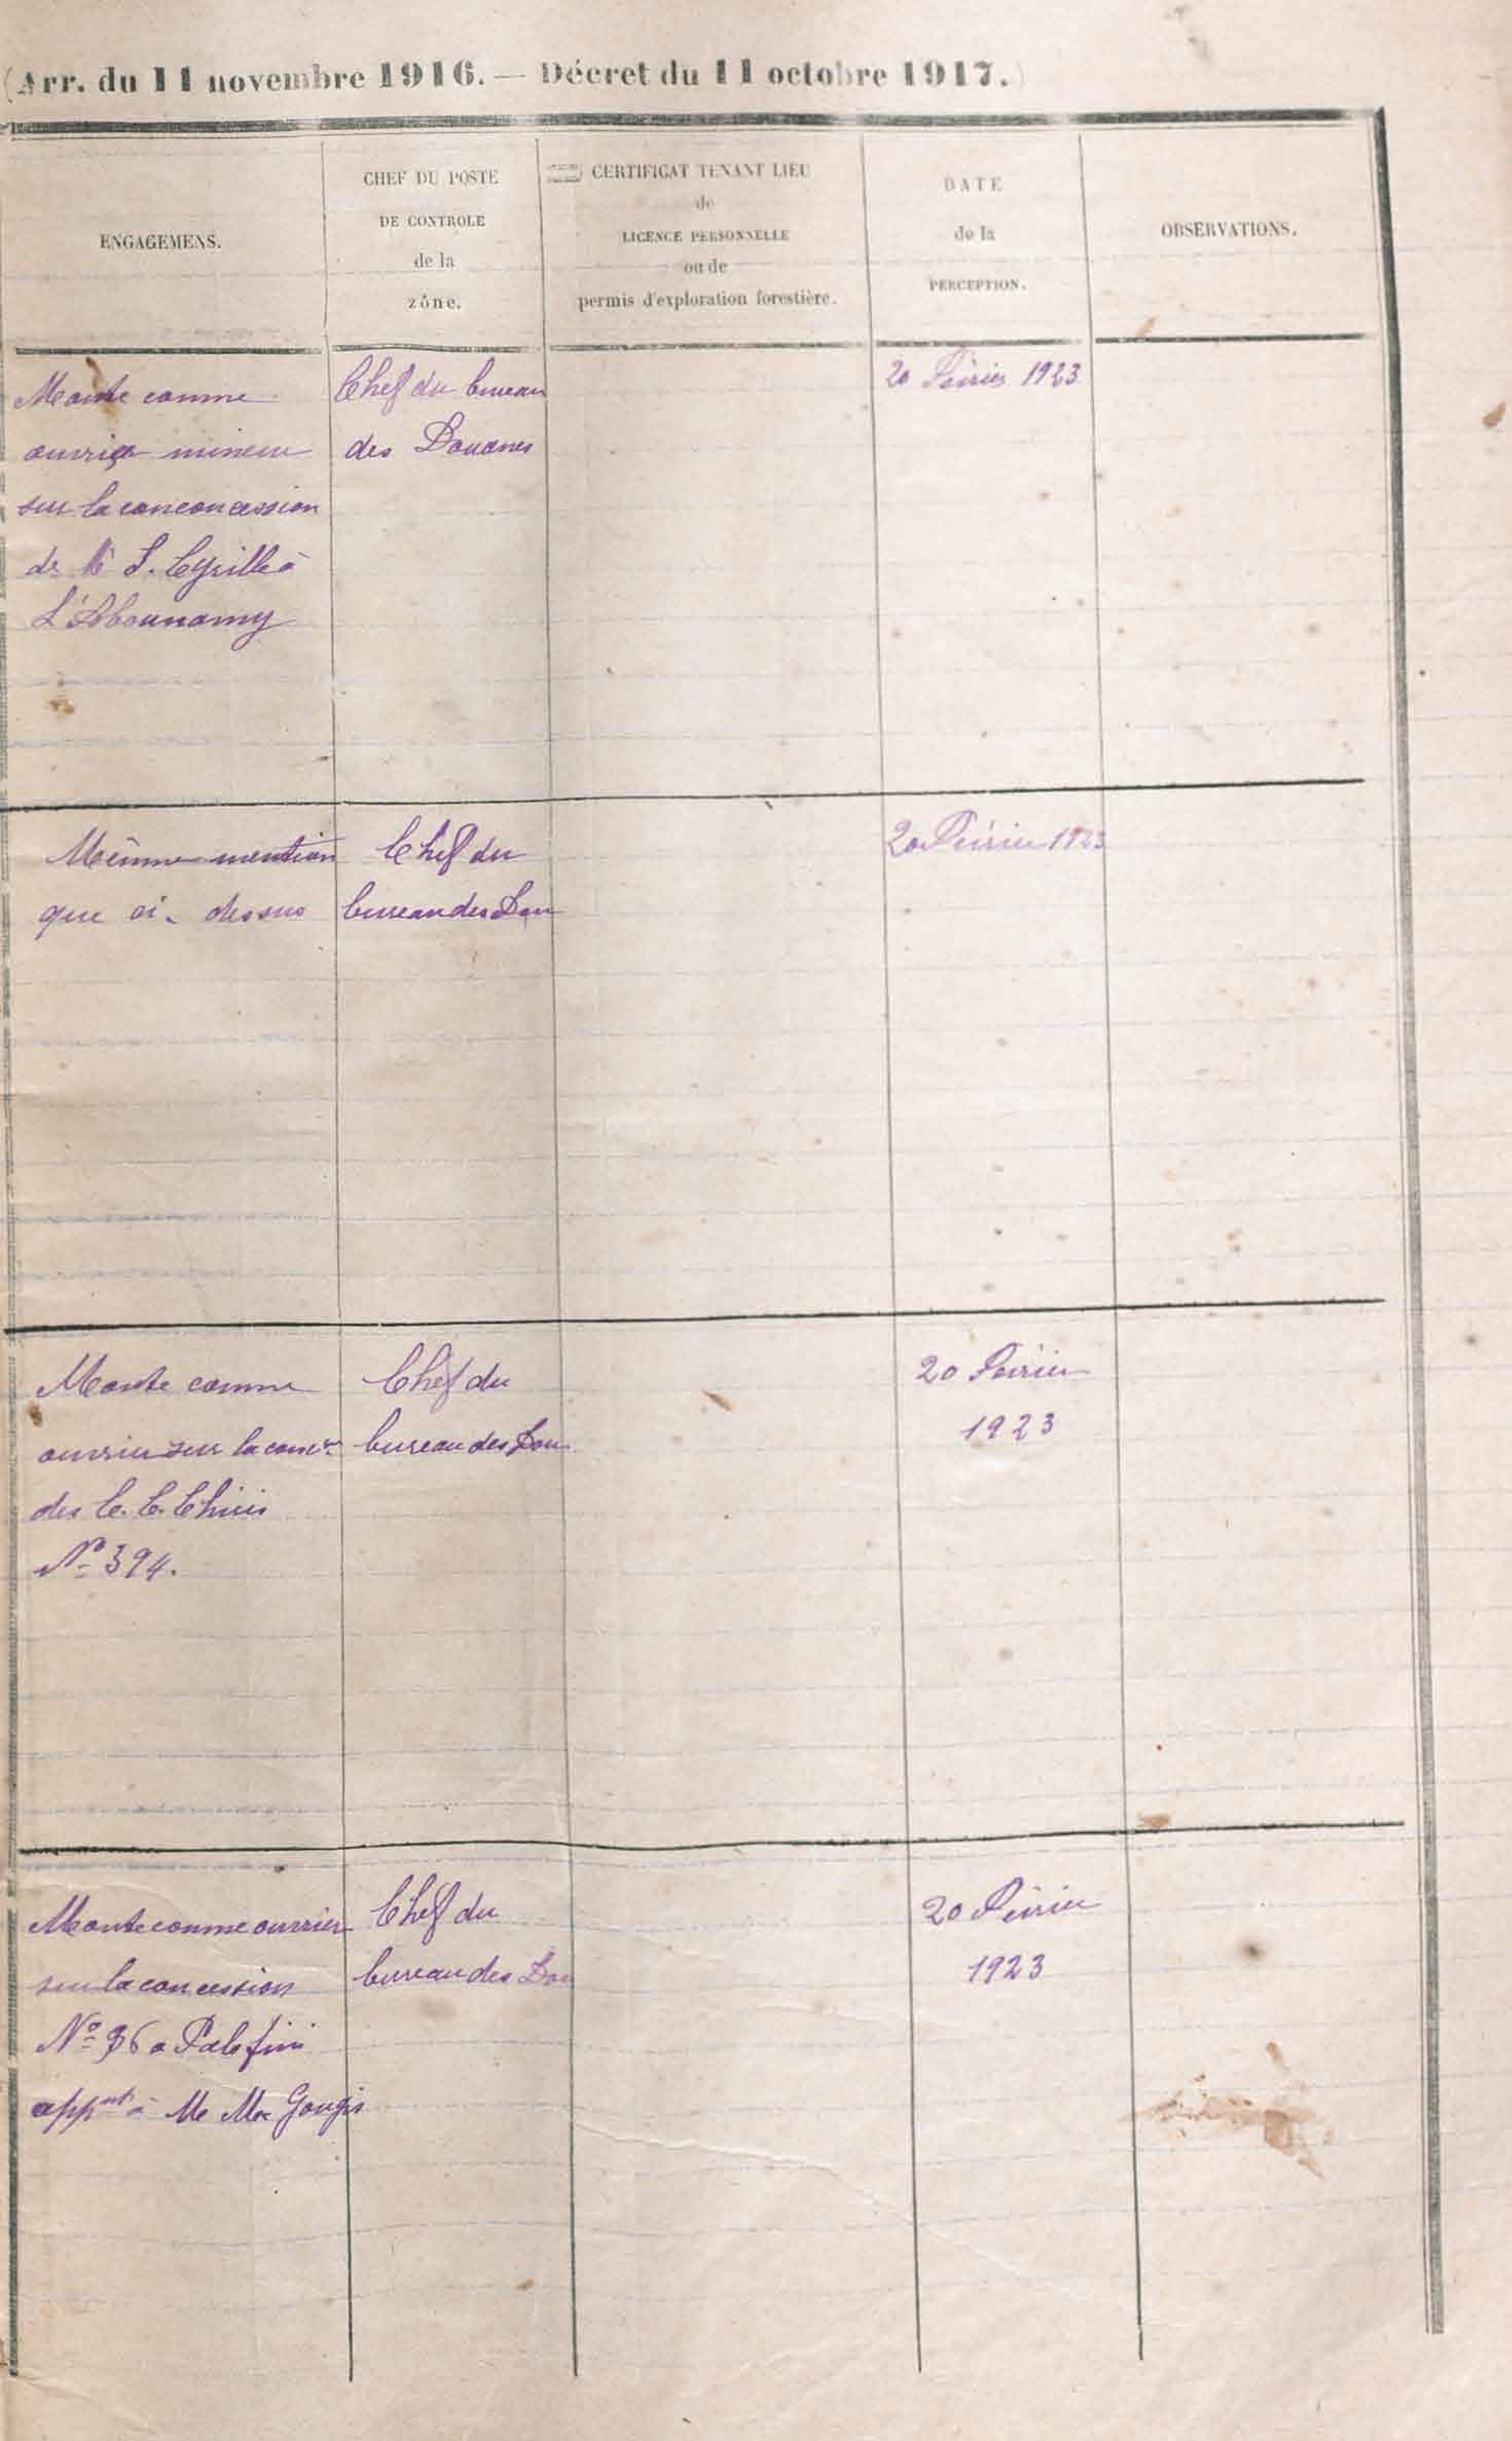 (Arr. du 11 novembre 1916. — Décret du 11 octobre 1917.)
ENGAGEMENS.
CHEF DU POSTE
DE CONTROLE
de la
zône.
CERTIFICAT TENANT LIEU
de
LICENCE PERSONNELLE
ou de
permis d'exploration forestière.
DATE
de la
PERCEPTION.
OBSERVATIONS.
Monte comme
ouvrier mineur
sur la conconcession
de Mr S. Cyrille à
L'Abounamy
Chef du bureau
des Douanes
20 Février 1923
Même mention
que ci-dessus
Chef du
bureau des Dou
20 Février 1923
Monte comme
ouvrier sur la conc.
des C. C. Chiris
No 394.
Chef du
bureau des Dou
20 Février
1923
Monte comme ouvrier
sur la concession
No 36 a Palofini
appnt à Me Gougis
Chef du
bureau des Dou
20 Février
1923